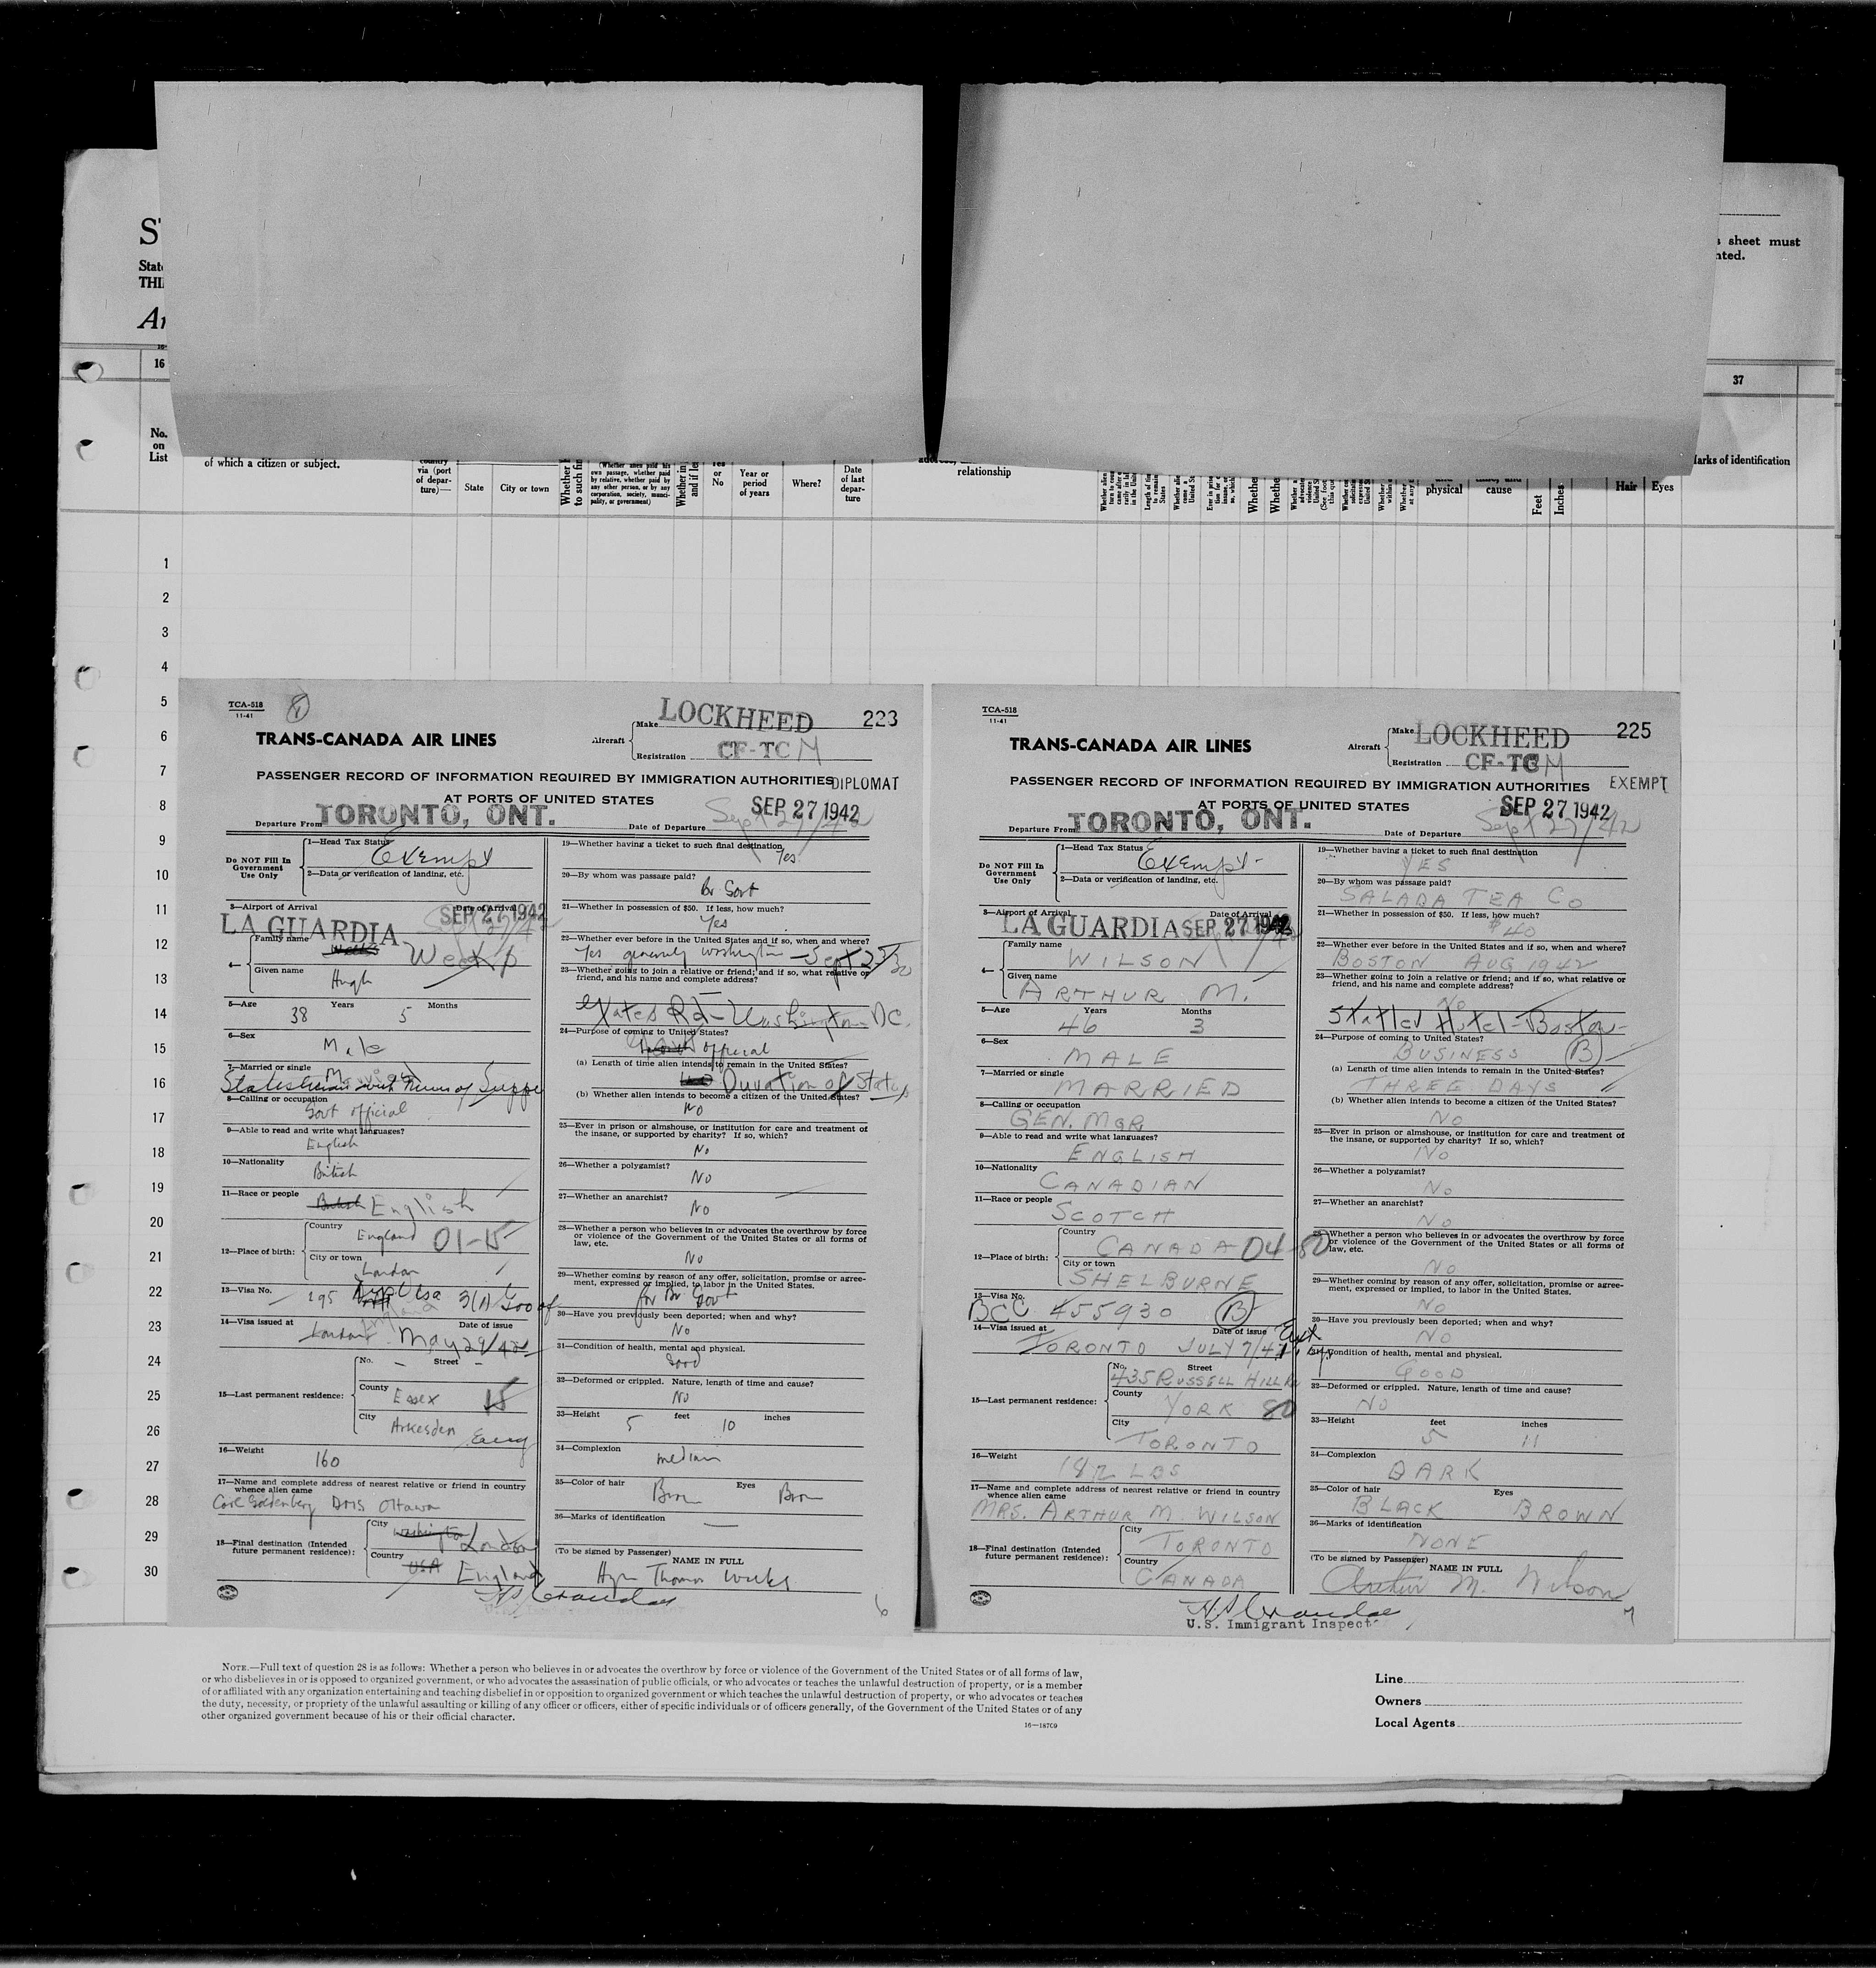 S
State
THI
Ar
16
No.
on
List
of which a citizen or subject.
country
via (port
of depar-
ture)—
State
City or town
(Whether alien paid his
own passage, whether paid
by relative, whether paid by
any other person, or by any
corporation, society, munici-
pality, or government)
Yes
or
No
Year or
period
of years
Where?
Date
of last
depar-
ture
relationship
physical
cause
Feet
Inches
Hair
Eyes
sheet must
nted.
37
Marks of identification
1
2
3
4
5
6
7
8
9
10
11
12
13
14
15
16
17
18
19
20
21
22
23
24
25
26
27
28
29
30
TCA-518
11-41
TRANS-CANADA AIR LINES
Aircraft
Make LOCKHEED
Registration CF-TCM
223
PASSENGER RECORD OF INFORMATION REQUIRED BY IMMIGRATION AUTHORITIES
DIPLOMAT
AT PORTS OF UNITED STATES
Departure From TORONTO, ONT.
Date of Departure SEP 27 1942
Sept 27/42
Do NOT Fill In
Government
Use Only
1—Head Tax Status
Exempt
2—Data or verification of landing, etc.
3—Airport of Arrival
LA GUARDIA
Date of Arrival
SEP 27 1942
4—
Family name
Weeks
Given name
Hugh
5—Age 38 Years 5 Months
6—Sex
Male
7—Married or single
8—Calling or occupation
Govt official
9—Able to read and write what languages?
English
10—Nationality
British
11—Race or people
British English
12—Place of birth:
Country
England 01-15
City or town
London
13—Visa No.
195
14—Visa issued at
Date of issue
London May 29/42
15—Last permanent residence:
No. — Street —
County
Essex 15
City
Arkesden Eng
16—Weight
160
17—Name and complete address of nearest relative or friend in country
whence alien came
Carl Goldenberg DMS Ottawa
18—Final destination (Intended
future permanent residence):
City
Washington London
Country
USA England
19—Whether having a ticket to such final destination
Yes
20—By whom was passage paid?
Br Govt
21—Whether in possession of $50. If less, how much?
Yes
22—Whether ever before in the United States and if so, when and where?
Yes generally Washington
23—Whether going to join a relative or friend; and if so, what relative or
friend, and his name and complete address?
Washington DC.
24—Purpose of coming to United States?
official
(a) Length of time alien intends to remain in the United States?
Duration of Status
(b) Whether alien intends to become a citizen of the United States?
No
25—Ever in prison or almshouse, or institution for care and treatment of
the insane, or supported by charity? If so, which?
No
26—Whether a polygamist?
No
27—Whether an anarchist?
No
28—Whether a person who believes in or advocates the overthrow by force
or violence of the Government of the United States or all forms of
law, etc.
No
29—Whether coming by reason of any offer, solicitation, promise or agree-
ment, expressed or implied, to labor in the United States.
for Br Govt
30—Have you previously been deported; when and why?
No
31—Condition of health, mental and physical.
Good
32—Deformed or crippled. Nature, length of time and cause?
No
33—Height 5 feet 10 inches
34—Complexion
medium
35—Color of hair Eyes
Brown Brown
36—Marks of identification
—
(To be signed by Passenger)
NAME IN FULL
Hugh Thomas Weeks
6
TCA-518
11-41
TRANS-CANADA AIR LINES
Aircraft
Make LOCKHEED
Registration CF-TCM
225
PASSENGER RECORD OF INFORMATION REQUIRED BY IMMIGRATION AUTHORITIES
EXEMPT
AT PORTS OF UNITED STATES
Departure From TORONTO, ONT.
Date of Departure SEP 27 1942
Sept 27/42
Do NOT Fill In
Government
Use Only
1—Head Tax Status
Exempt-
2—Data or verification of landing, etc.
3—Airport of Arrival
LA GUARDIA
Date of Arrival
SEP 27 1942
4—
Family name
WILSON
Given name
ARTHUR M.
5—Age 46 Years 3 Months
6—Sex
MALE
7—Married or single
MARRIED
8—Calling or occupation
GEN. MGR
9—Able to read and write what languages?
ENGLISH
10—Nationality
CANADIAN
11—Race or people
SCOTCH
12—Place of birth:
Country
CANADA 04-80
City or town
SHELBURNE
13—Visa No.
BCC 455930 (B)
14—Visa issued at
Date of issue
TORONTO JULY 7/41
15—Last permanent residence:
No. Street
435 RUSSELL HILL RD
County
YORK 80
City
TORONTO
16—Weight
182 LBS
17—Name and complete address of nearest relative or friend in country
whence alien came
MRS. ARTHUR M. WILSON
18—Final destination (Intended
future permanent residence):
City
TORONTO
Country
CANADA
19—Whether having a ticket to such final destination
YES
20—By whom was passage paid?
SALADA TEA CO
21—Whether in possession of $50. If less, how much?
$40
22—Whether ever before in the United States and if so, when and where?
BOSTON AUG 1942
23—Whether going to join a relative or friend; and if so, what relative or
friend, and his name and complete address?
No
Statler Hotel-Boston-
24—Purpose of coming to United States?
BUSINESS (B)
(a) Length of time alien intends to remain in the United States?
THREE DAYS
(b) Whether alien intends to become a citizen of the United States?
No
25—Ever in prison or almshouse, or institution for care and treatment of
the insane, or supported by charity? If so, which?
No
26—Whether a polygamist?
No
27—Whether an anarchist?
No
28—Whether a person who believes in or advocates the overthrow by force
or violence of the Government of the United States or all forms of
law, etc.
No
29—Whether coming by reason of any offer, solicitation, promise or agree-
ment, expressed or implied, to labor in the United States.
No
30—Have you previously been deported; when and why?
No
31—Condition of health, mental and physical.
GOOD
32—Deformed or crippled. Nature, length of time and cause?
NO
33—Height 5 feet 11 inches
34—Complexion
DARK
35—Color of hair Eyes
BLACK BROWN
36—Marks of identification
NONE
(To be signed by Passenger)
NAME IN FULL
Arthur M. Wilson
U.S. Immigrant Inspector
7
NOTE.—Full text of question 28 is as follows: Whether a person who believes in or advocates the overthrow by force or violence of the Government of the United States or of all forms of law,
or who disbelieves in or is opposed to organized government, or who advocates the assassination of public officials, or who advocates or teaches the unlawful destruction of property, or is a member
of or affiliated with any organization entertaining and teaching disbelief in or opposition to organized government or which teaches the unlawful destruction of property, or who advocates or teaches
the duty, necessity, or propriety of the unlawful assaulting or killing of any officer or officers, either of specific individuals or of officers generally, of the Government of the United States or of any
other organized government because of his or their official character.
16—18709
Line
Owners
Local Agents